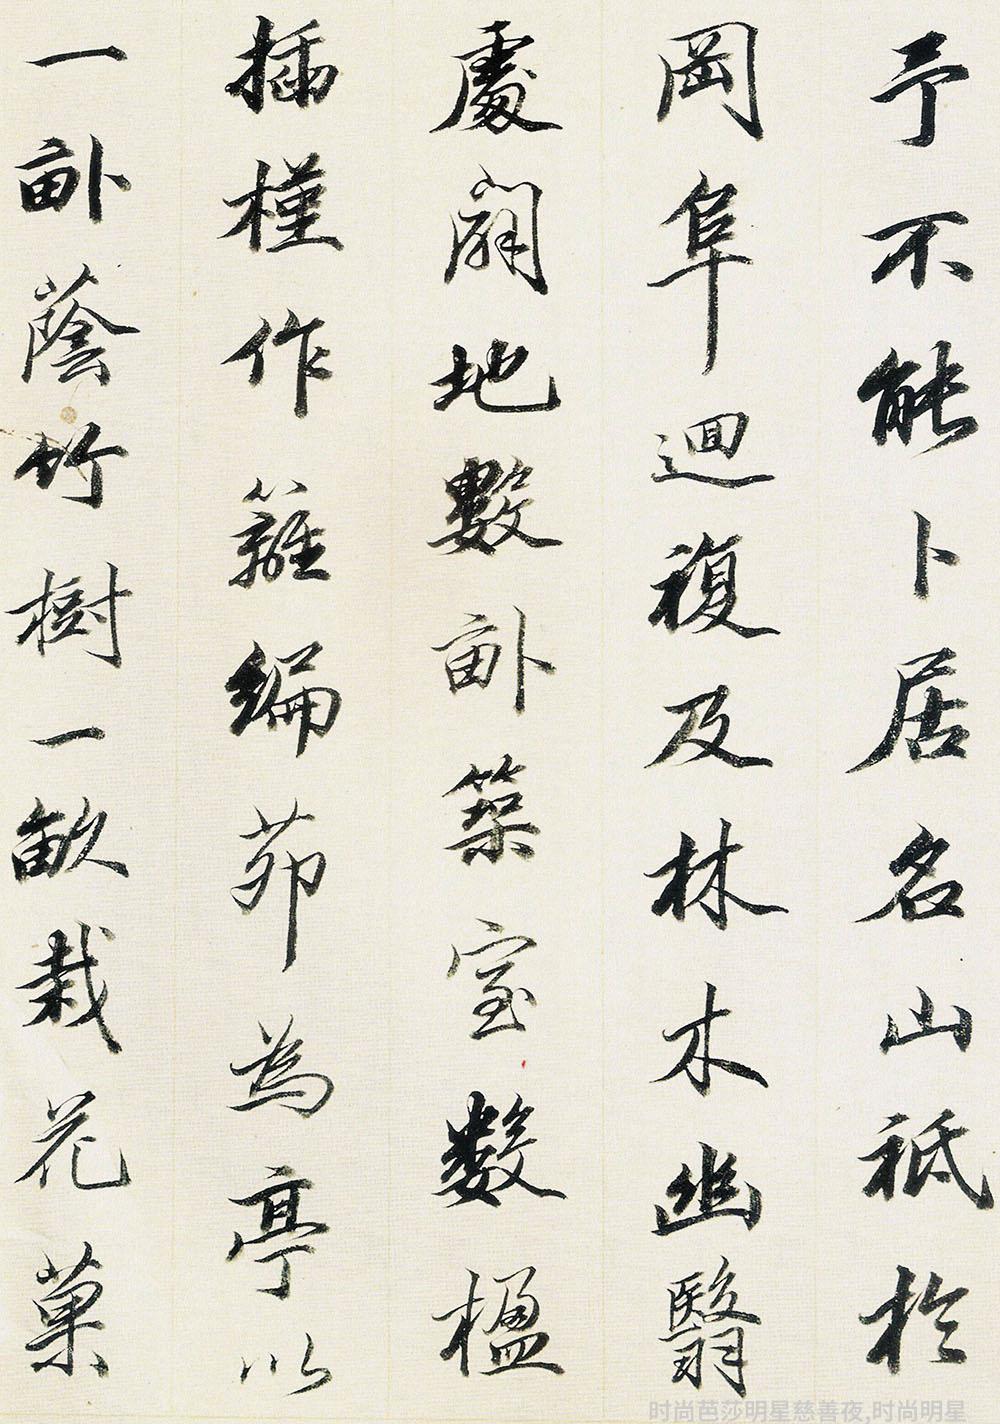 予不能卜居名山祗於
岡阜迴複及林木幽翳
處闢地數畝築室數楹
插槿作籬編茆為亭以
一畝蔭竹樹一畝栽花菓
时尚芭莎明星慈善夜,时尚明星